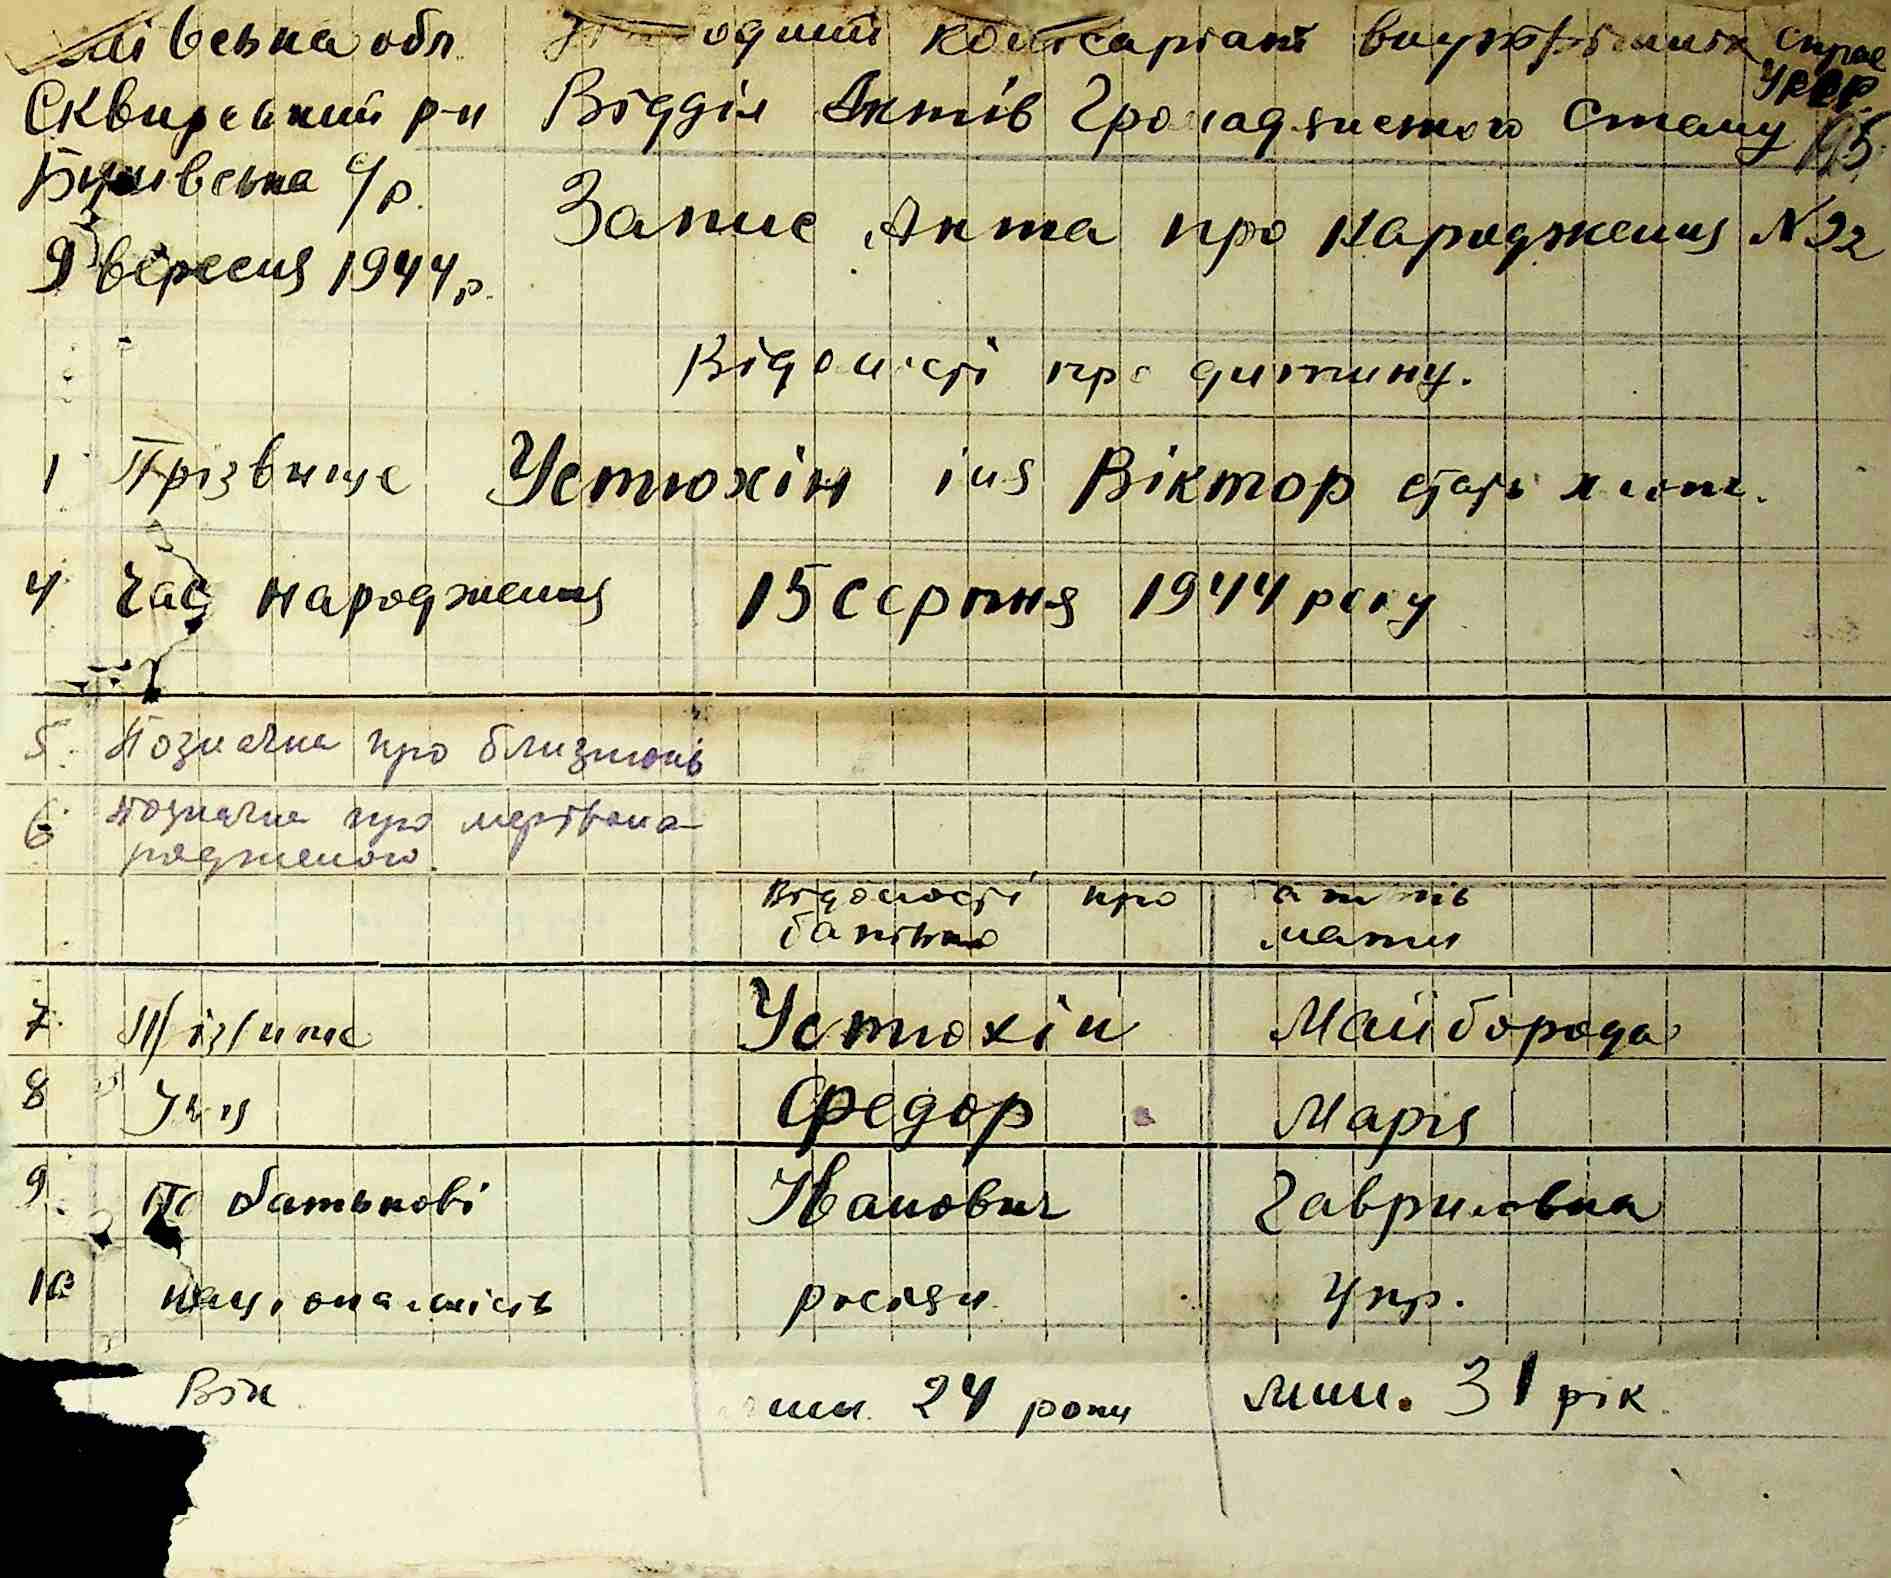 Київська обл. Народний комісаріат внутрішніх справ
УРСР
Сквирський р-н Відділ Актів Громадянського Стану 195
с/р. Запис Акта про народження №22
9 вересня 1944 р.
Відомості про дитину.
1 Прізвище Устюхін імя Віктор стать хлопч.
4 Час народження 15 серпня 1944 року
5. Позначка про близнюків
6 Позначка про мертвона-
родженого.
Відомості про батьків
батько мати
7. Прізвище Устюхін Майборода
8 Імя Федор Марія
9. По батькові Іванович Гавриловна
10 національність росіян. Укр.
Вік мин. 24 роки мин. 31 рік.